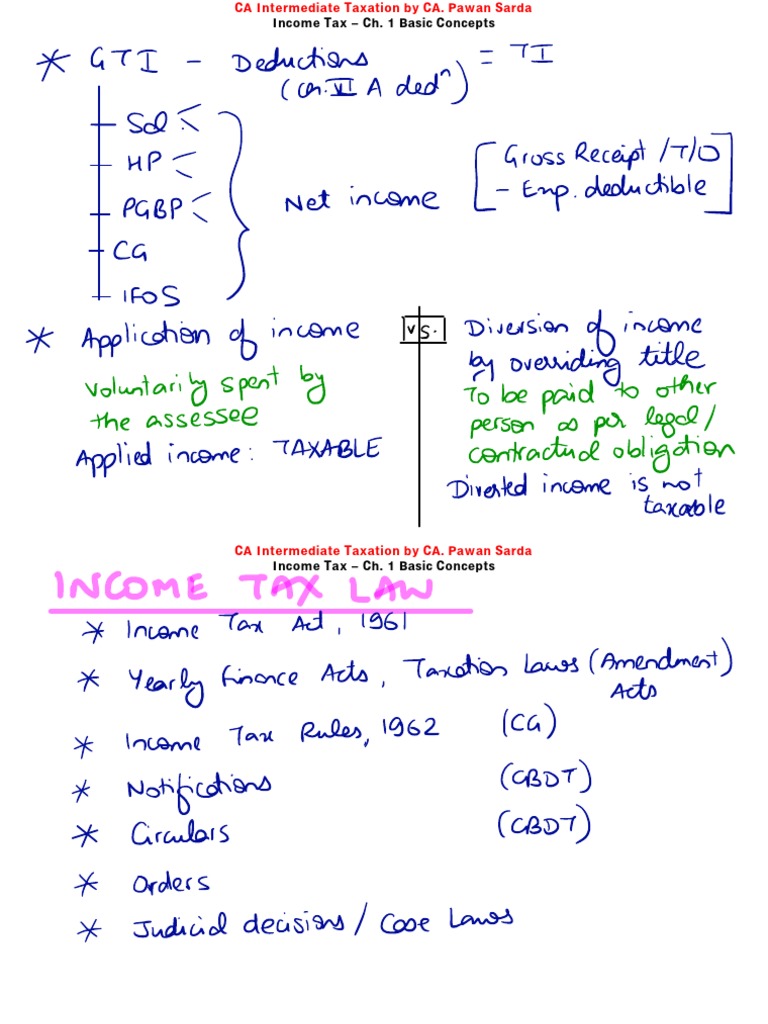 CA Intermediate Taxation by CA. Pawan Sarda
Income Tax – Ch. 1 Basic Concepts
* GTI - Deductions = TI
(Ch. VI A dedⁿ)
Sal
HP
PGBP
CG
IFOS
Net income
[Gross Receipt /T/O
- Exp. deductible]
* Application of income
Voluntarily spent by
the assessee
Applied income: TAXABLE
VS.
Diversion of income
by overriding title
To be paid to other
person as per legal/
contractual obligation
Diverted income is not
taxable
CA Intermediate Taxation by CA. Pawan Sarda
Income Tax – Ch. 1 Basic Concepts
INCOME TAX LAW
* Income Tax Act, 1961
* Yearly Finance Acts, Taxation Laws (Amendment)
Acts
* Income Tax Rules, 1962 (CG)
* Notifications (CBDT)
* Circulars (CBDT)
* Orders
* Judicial decisions / Case Laws